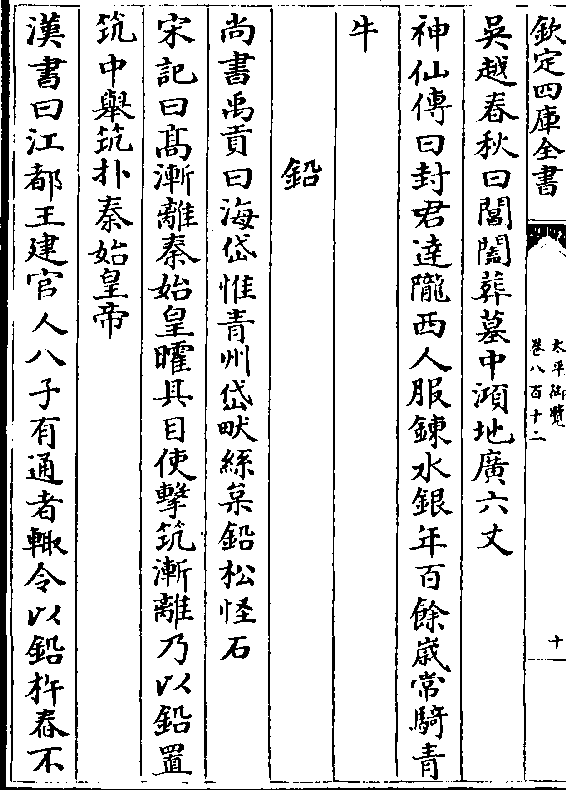 欽定四庫全書
太平御覽
卷八百十二
十
吳越春秋曰闔閭葬墓中澒地廣六丈
神仙傳曰封君達隴西人服鍊水銀年百餘嵗常騎青
牛
鉛
尚書禹貢曰海岱惟青州岱畎絲枲鉛松怪石
宋記曰髙漸離秦始皇矐具目使擊筑漸離乃以鉛置
筑中舉筑扑秦始皇帝
漢書曰江都王建官人八子有過者輙令以鉛杵舂不